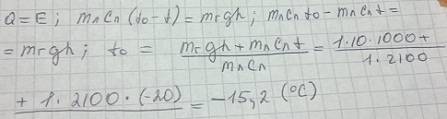 Q = E; mлCл (t0 - t) = mгgh; mлCл t0 - mлCл t =
= mгgh; t0 = (mгgh + mлCл t) / (mлCл) = (1·10·1000 +) / (1·2100)
+ 1·2100·(-20) = -15,2 (°C)